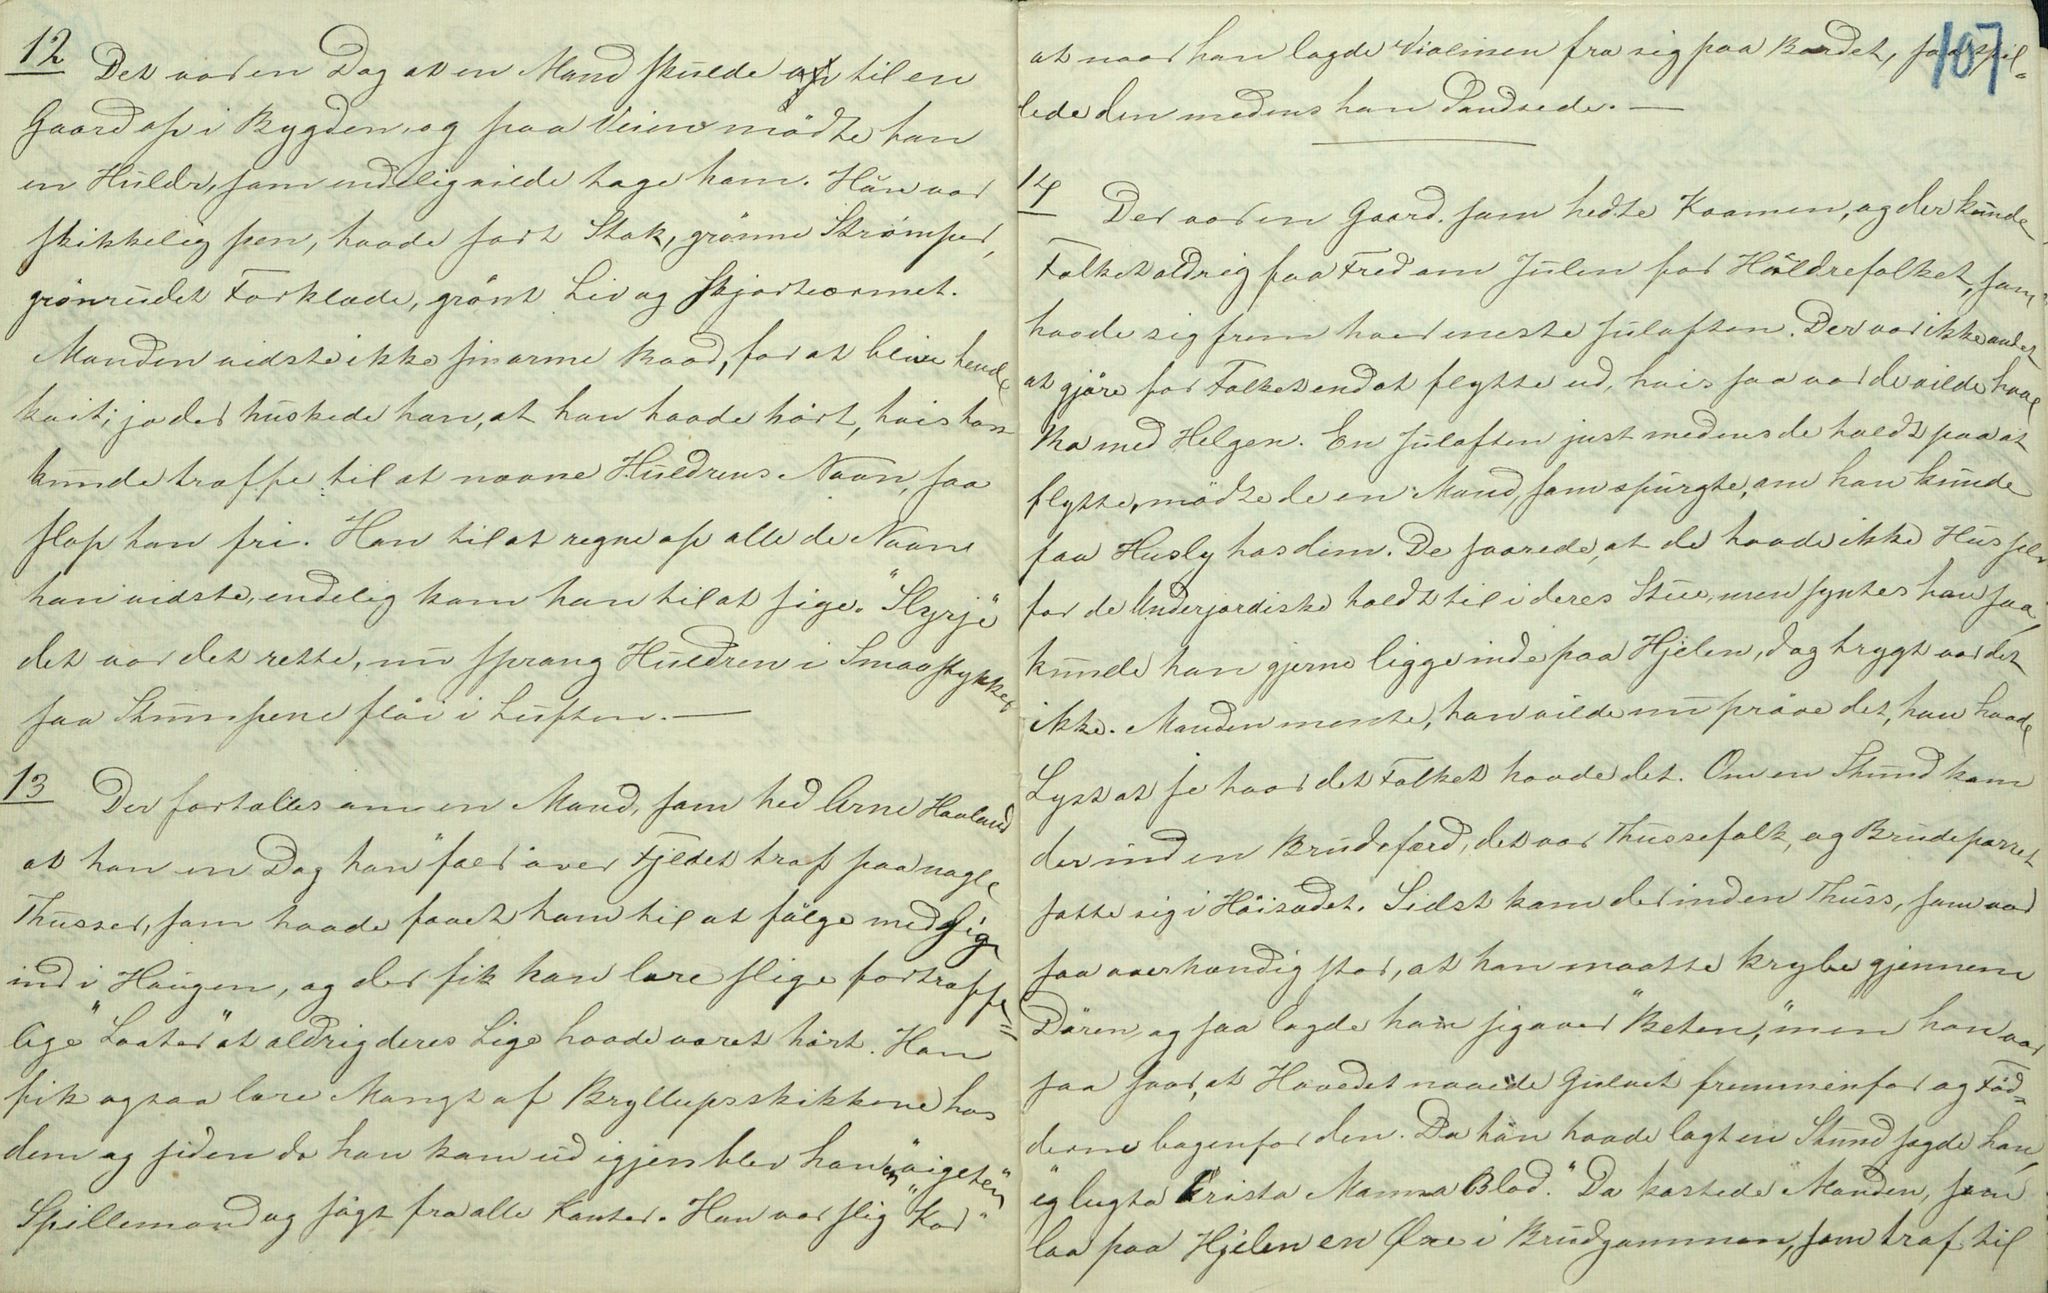 12
Det var en Dag at en Mand skulde til en
Gaard op i Bygden, og paa Veien mödte han
en Huldr, som endelig vilde tage ham. Hun var
skikkelig pen, havde sort Stak, grönne Strömper,
grönrudet Forklæde, grönt Liv og Skjorteærmet.
Manden vidste ikke sin arme Raad, for at blive hende
kvit; jo der huskede han, at han havde hört, hvis han
kunde træffe til at nævne Huldrens Navn, saa
slap han fri. Han til at regne op alle de Navne
han vidste, endelig kom han til at sige. "Slyrje"
det var det rette, nu sprang Huldren i Smaastykker
saa Stumpene flöi i Luften. —
13
Der fortælles om en Mand, som hed Arne Haaland
at han en Dag han "foer" over Fjeldet traf paa nogle
Thusser, som havde faaet ham til at fölge med sig
ind i Haugen, og der fik han lære slige fortræffe=
lige "Laater" at aldrig deres Lige havde været hört. Han
fik ogsaa lære Mangt af Bryllupsskikkene hos
dem og siden da han kom ud igjen blev han en "vigeten"
Spillemand og sögt fra alle Kanter. Han var slig "Kar"
107
at naar han lagde Violinen fra sig paa Bordet, saa spil=
lede den medens han Dandsede. —
14
Der var en Gaard. som hedte Kaamen, og der kunde
Folket aldrig faa Fred om Julen for Huldrefolket, som
havde sig frem hver eneste Juleaften. Der var ikke andet
at gjöre for Folket end at flytte ud, hvis saa var de vilde have
Ro med Helgen. En Juleaften just medens de holdt paa at
flytte, mödte de en Mand, som spurgte, om han kunde
faa Husly hos dem. De svarede, at de havde ikke Hus selv
for de Underjordiske holdt til i deres Stue, men syntes han saa,
kunde han gjerne ligge inde paa Hjelen, dog trygt var det
ikke. Manden mente, han vilde nu pröve det, han havde
Lyst at se hvor det Folket havde det. Om en Stund kom
der ind en Brudefærd, det var Thussefolk, og Brudeparret
satte sig i Höisædet. Sidst kom der ind en Thuss, som var
saa overhændig stor, at han maatte krybe gjennem
Dören, og saa lagde han sig over "Beten," men han var
saa svær, at Hovedet naaede Gulvet fremmenfor og Föd=
derne bagenfor den. Da han havde lagt en Stund sagde han,
"eg lugta Krista Manna Blod." Da kastede Manden, som
laa paa Hjelen en Öxe i Brudgommen, som traf til